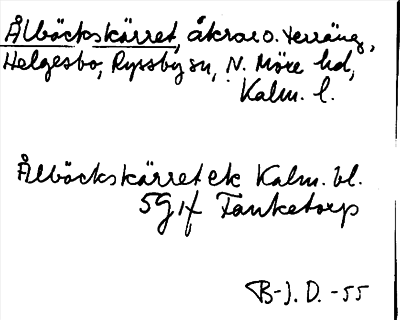 Ålbäckskärret, åkrar o. terräng,
Helgesbo, Ryssby sn, N. Möre hd,
Kalm. l.
Ålbäckskärret ek Kalm. bl.
5G 1f Tanketorp
B-J. D. -55